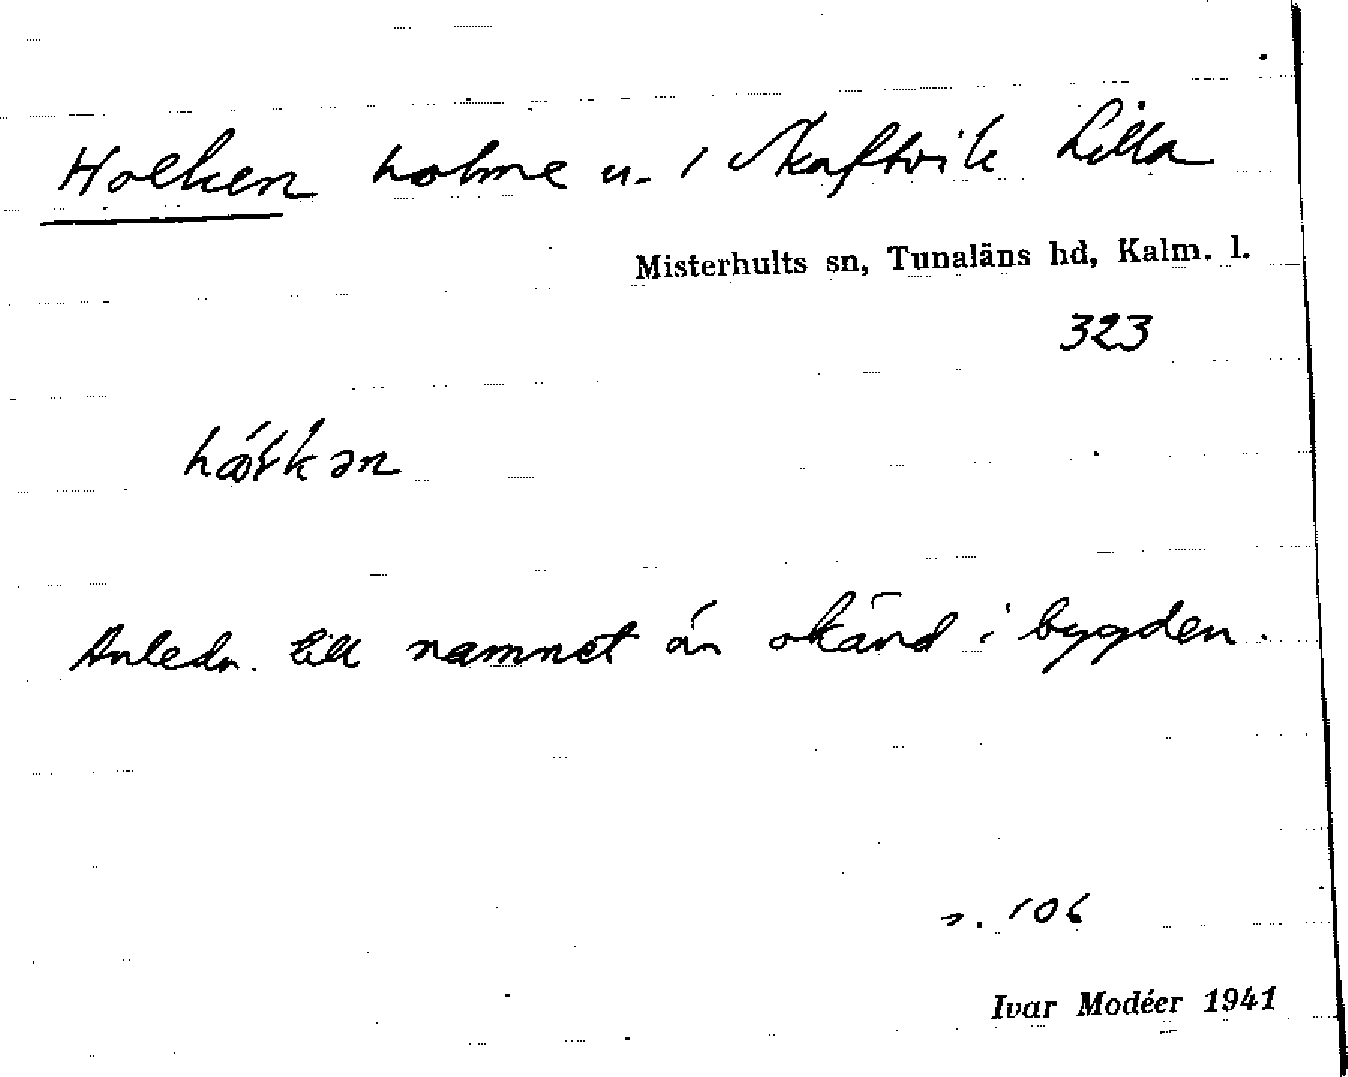 Holken holme u. 1 Skaftvik Lilla
Misterhults sn, Tunaläns hd, Kalm. l.
323
Anledn. till namnet än okänd i bygden.
s. 106
Ivar Modéer 1941